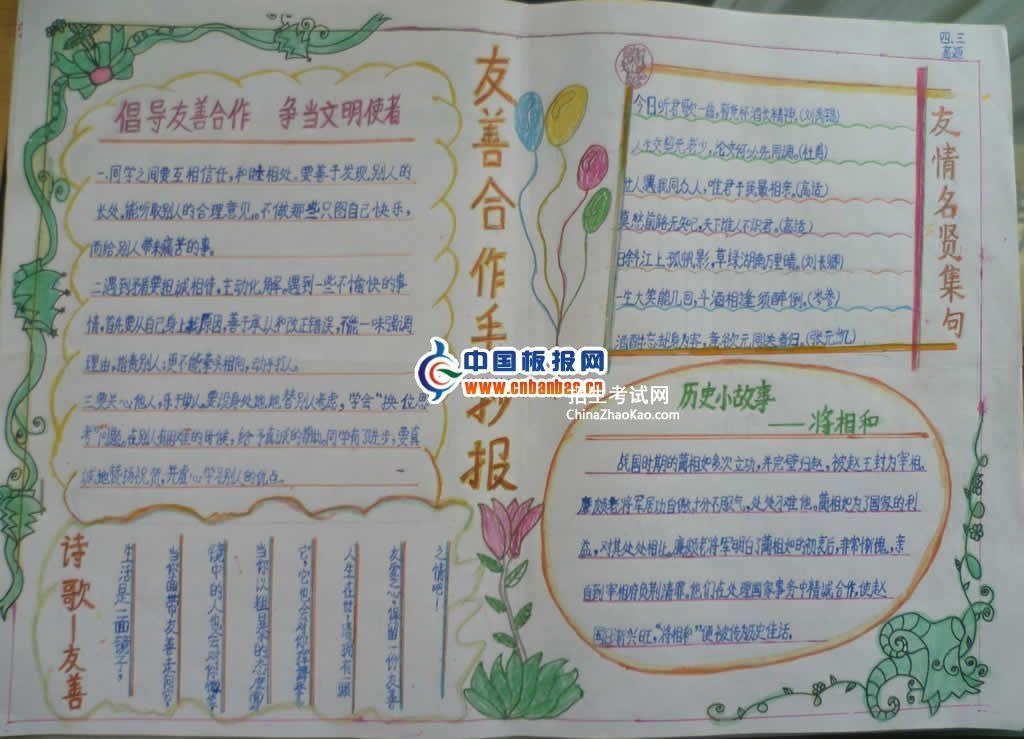 四、三
高远
友善合作手抄报
倡导友善合作 争当文明使者
一、同学之间要互相信任，和睦相处。要善于发现别人的
长处，能听取别人的合理意见。不做那些只图自己快乐，
而给别人带来痛苦的事。
二、遇到矛盾要坦诚相待，主动化解。遇到一些不愉快的事
情，首先要从自己身上找原因，善于承认和改正错误，不能一味强调
理由，指责别人；更不能拳头相向，动手打人。
三、要关心他人，乐于助人。要设身处地地替别人考虑，学会"换位思
考"问题。在别人有困难的时候，给予真诚的帮助。同学有了进步，要真
诚地赞扬祝贺，并虚心学习别人的优点。
友情名贤集句
今日听君歌一曲，暂凭杯酒长精神。(刘禹锡)
人生交契无老少，论交何必先同调。(杜甫)
世人遇我同众人，唯君于我最相亲。(高适)
莫愁前路无知己，天下谁人不识君。(高适)
日斜江上孤帆影，草绿湖南万里晴。(刘长卿)
一生大笑能几回，斗酒相逢须醉倒。(岑参)
(张元凯)
中国板报网
www.cnbanbao.cn
招生考试网
ChinaZhaoKao.com
历史小故事
——将相和
战国时期的蔺相如多次立功，并完璧归赵，被赵王封为宰相。
廉颇老将军居功自傲十分不服气，处处刁难他。蔺相如为了国家的利
益，对其处处相让。廉颇老将军明白了蔺相如的初衷后，非常惭愧，亲
自到宰相府负荆请罪。他们在处理国家事务中精诚合作，使赵
国日渐兴旺，"将相和"便被传为历史佳话。
诗歌—友善
生活是一面镜子，
当你面带友善走向它
镜中的人也会对你微笑
当你以粗暴的态度面
它，它也会对你挥舞拳
人生在世，请拥有一颗
友爱之心，保留一份友善
之情吧！